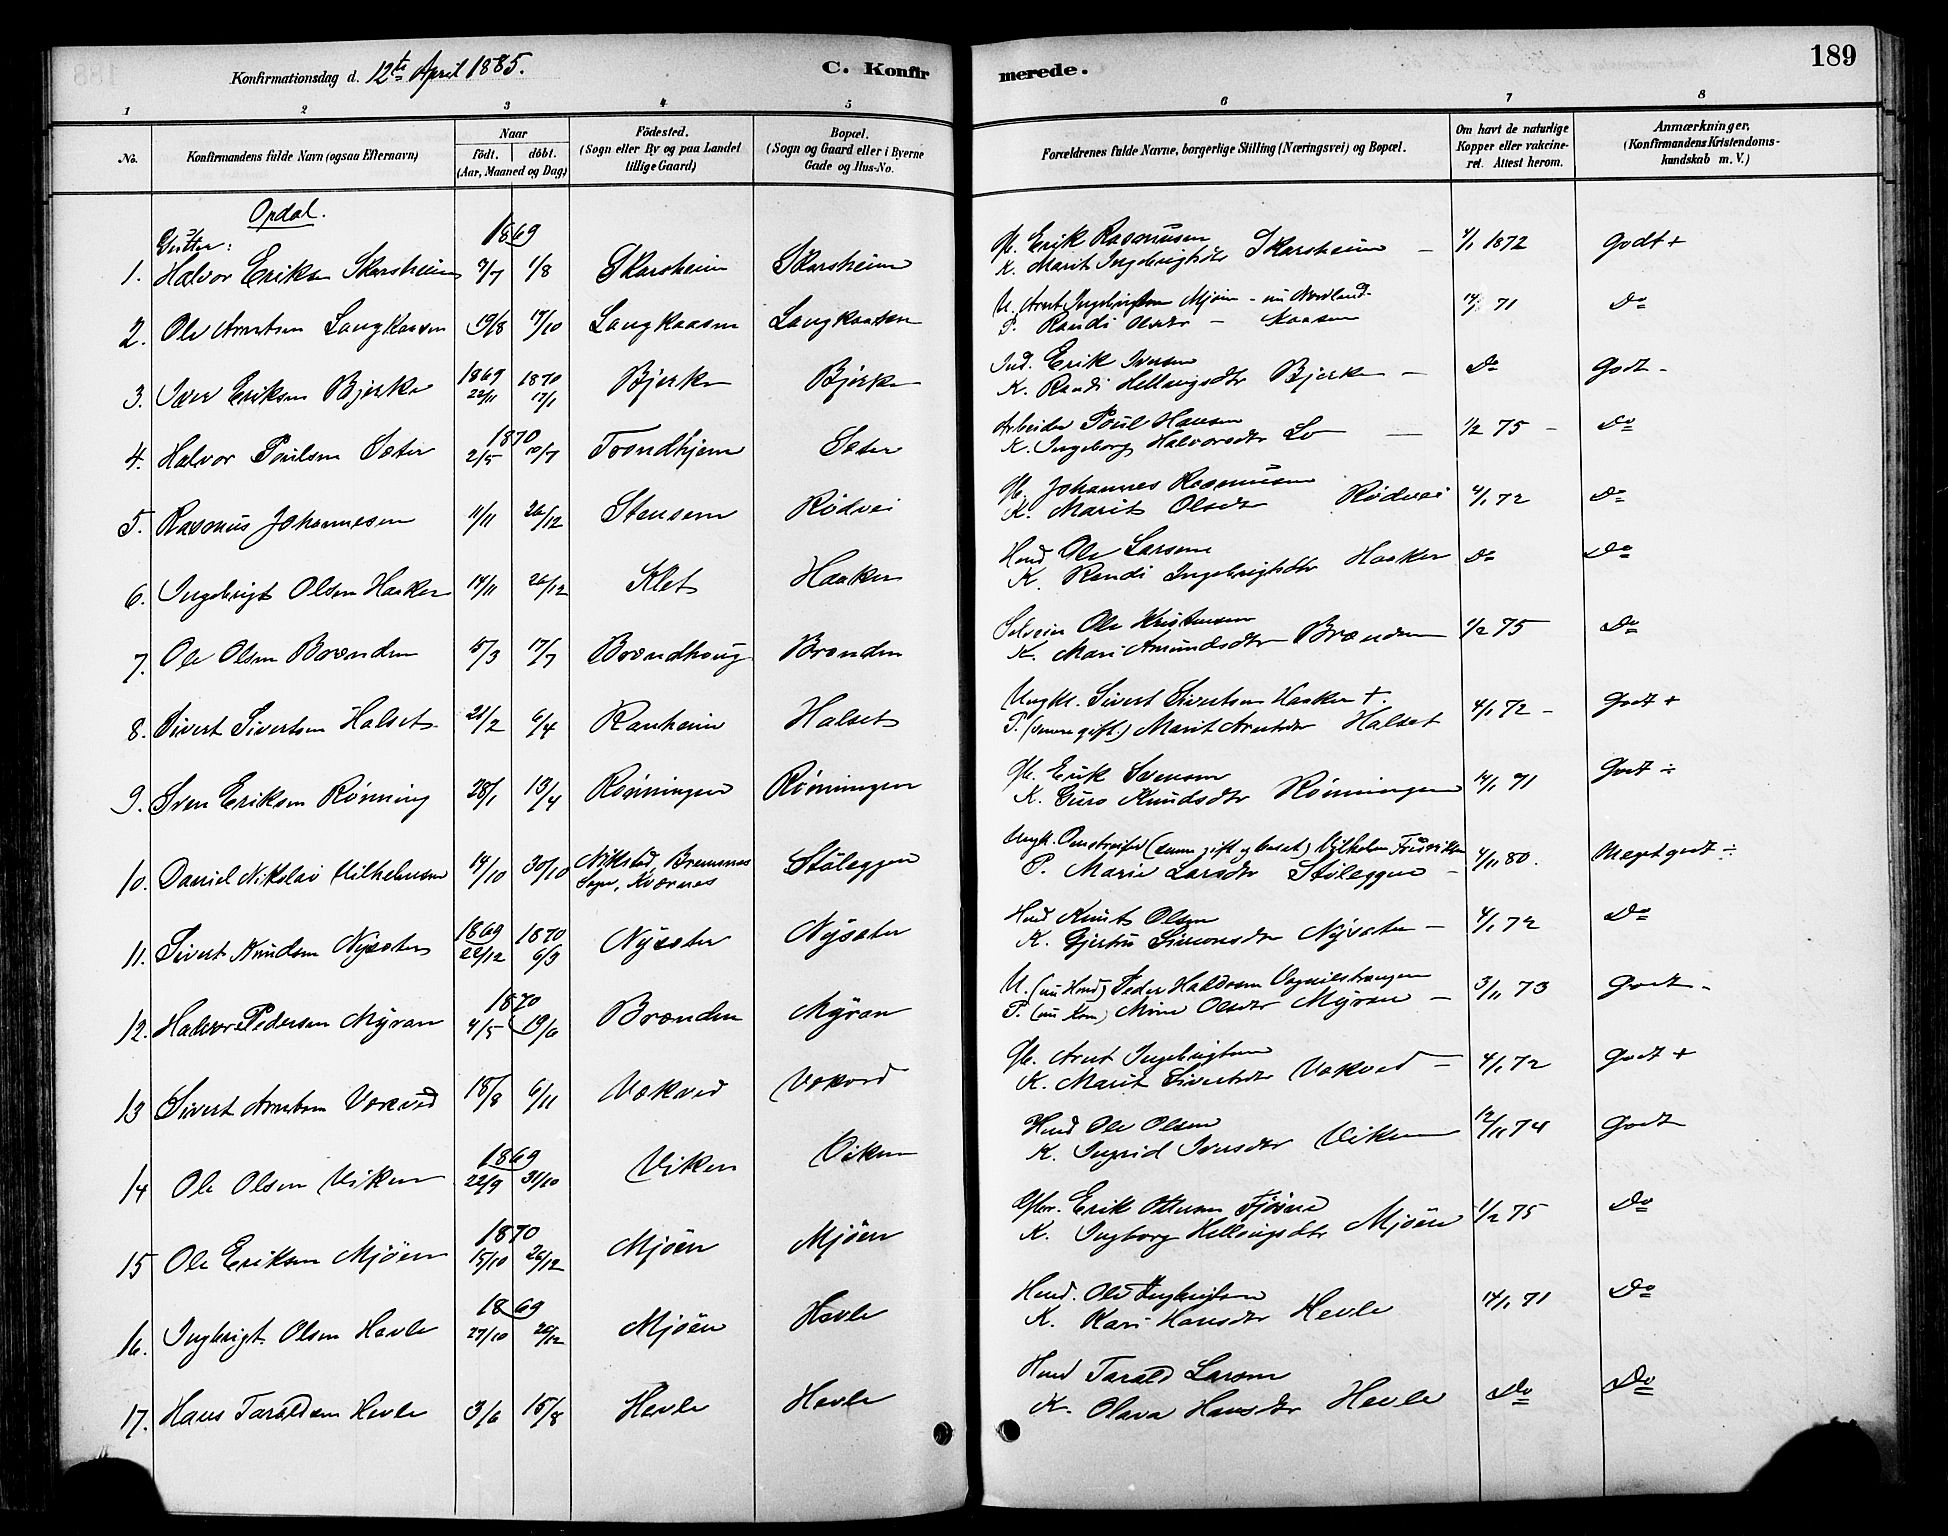 189
Konfirmationsdag d. 12te April 1885.
C. Konfirmerede.
1 2 3 4 5 6 7 8
No.
Konfirmandens fulde Navn (ogsaa Efternavn)
Naar
födt. döbt.
(Aar, Maaned og Dag)
Födested.
(Sogn eller By og paa Landet
tillige Gaard)
Bopæl.
(Sogn og Gaard eller i Byerne
Gade og Hus-No.
Forældrenes fulde Navne, borgerlige Stilling (Næringsvei) og Bopæl.
Om havt de naturlige
Kopper eller vakcine-
ret. Attest herom.
Anmærkninger,
(Konfirmandens Kristendoms-
kundskab m. V.)
Opdal.
Gutter: 1869
1. Halvor Eriksen Skarsheim 9/7 1/8 Skarsheim Skarsheim Erik Rasmusen
K. Marit Ingebrigtsdtr Skarsheim – 4/1 1872 Godt +
2. Ole Arntsen Langkaasen 19/8 17/10 Langkaasen Langkaasen U. Arnt Ingebrigtsen Mjöen - nu Nordland -
P. Randi Olsdtr – Kaasen 14/1 71 Do
3. Iver Eriksen Bjerke 1869 22/11 1870 17/1 Bjerke Bjerke Ind. Erik Iversen
K. Randi Hellingsdtr Bjerke – Do Godt -
1870
4. Halvor Poulsen Sæter 2/5 10/7 Trondhjem Sæter Arbeider Poul Hansen
K. Ingeborg Halvorsdtr Lo – 1/2 75 – Do
5. Rasmus Johannesen 11/11 26/12 Stensem Rödvei Johannes Rasmusen
K. Marit Olsdtr Rödvei 4/1 72 Do
6. Ingebrigt Olsen Haaker 14/11 26/12 Klet Haaker Hmd Ole Larsen
K. Randi Ingebrigtsdtr Haaker Do Do
7. Ole Olsen Brænden 15/3 17/7 Brændhoug Brænden Selveier Ole Kristensen
K. Mari Amundsdtr Brænden 1/2 75 Do
8. Sivert Sivertsen Halset 21/2 6/4 Ranheim Halset Ungkl. Sivert Sivertsen Haaker +.
P. (senere gift.) Marit Arntsdtr Halset 4/1 72 – Godt +
9. Sven Eriksen Rönning 28/1 13/4 Rönningen Rönningen Erik Svensen
K. Guro Knudsdtr Rönningen 14/1 71 Godt ÷
10. Daniel Nikolai Vilhelmsen 14/10 30/10 Nykstad, Bremsnes
Sogn, Kværnes Stöleggen Ungk. Omstreifer (senere gift og bosat) Vilhelm Fredriksen
P. Marie Larsdtr Stöleggen – 4/11 80. Meget godt ÷
11. Sivert Knudsen Nysæter 1869 22/12 1870 6/3 Nysæter Nysæter Hmd Knut Olsen
K. Gjertru Simonsdtr Nysæter – 4/1 72 Do
1870
12. Halvor Pedersen Myran 4/5 19/6 Brænden Myran U. (nu Hmd) Peder Haldorsen Vognilstrangen
P. (nu Kone) Olsdtr Myran – 3/11 73 Godt -
13 Sivert Arntsen Vækved 18/8 6/11 Vækved Vækved Arnt Ingebrigtsen
K. Marit Sivertsdtr Vækved – 4/1 72 Godt +
1869
14 Ole Olsen Viken 22/9 31/10 Viken Viken Hmd Ole Olsen
K. Ingrid Iversdtr Viken 12/11 74 Godt
1870
15 Ole Eriksen Mjöen 15/10 26/12 Mjöen Mjöen Erik Ottesen Fjöseie
K. Ingborg Hellingsdtr Mjöen 1/2 75 Do
1869
16. Ingbrigt Olsen Hevle 27/10 26/12 Mjöen Hevle Hmd. Ole Ingbrigtsen
K. Kari Hansdtr Hevle 14/1 71 Do
17. Hans Taraldsen Hevle 3/6 15/8 Hevle Hevle Hmd Tarald Larsen
K. Olava Hansdtr Hevle Do Do